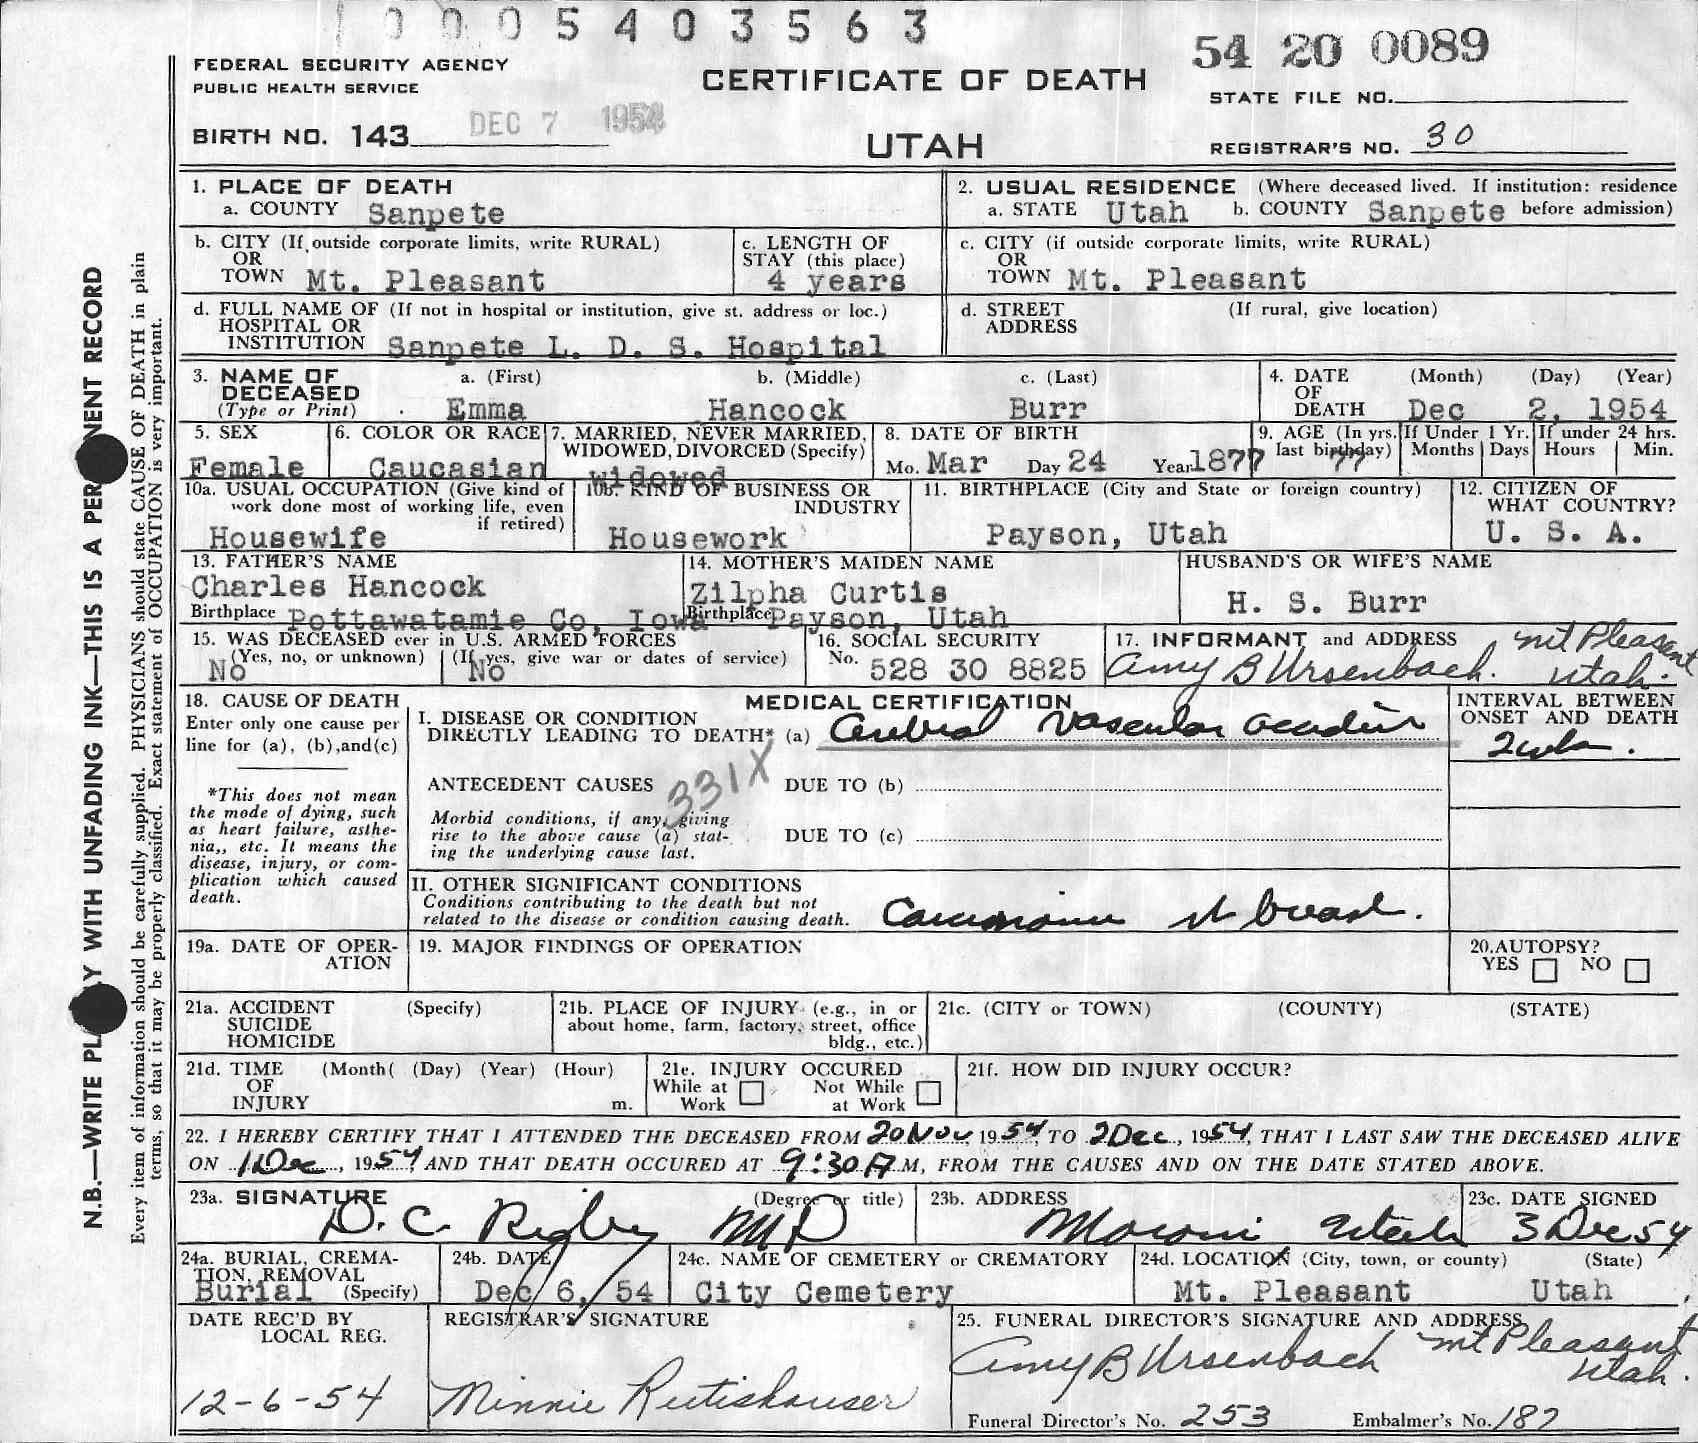 1 0 0 0 5 4 0 3 5 6 3
FEDERAL SECURITY AGENCY
PUBLIC HEALTH SERVICE
CERTIFICATE OF DEATH
54 20 0089
STATE FILE NO.
BIRTH NO. 143 DEC 7 1954
UTAH
REGISTRAR'S NO. 30
N.B.—WRITE PLAINLY WITH UNFADING INK—THIS IS A PERMANENT RECORD
Every item of information should be carefully supplied. PHYSICIANS should state CAUSE OF DEATH in plain
terms, so that it may be properly classified. Exact statement of OCCUPATION is very important.
1. PLACE OF DEATH
a. COUNTY Sanpete
2. USUAL RESIDENCE (Where deceased lived. If institution: residence
a. STATE Utah b. COUNTY Sanpete before admission)
b. CITY (If outside corporate limits, write RURAL)
OR
TOWN Mt. Pleasant
c. LENGTH OF
STAY (this place)
4 years
c. CITY (if outside corporate limits, write RURAL)
OR
TOWN Mt. Pleasant
d. FULL NAME OF (If not in hospital or institution, give st. address or loc.)
HOSPITAL OR
INSTITUTION Sanpete L. D. S. Hospital
d. STREET (If rural, give location)
ADDRESS
3. NAME OF a. (First) b. (Middle) c. (Last)
DECEASED
(Type or Print) Emma Hancock Burr
4. DATE (Month) (Day) (Year)
OF
DEATH Dec 2, 1954
5. SEX
Female
6. COLOR OR RACE
Caucasian
7. MARRIED, NEVER MARRIED,
WIDOWED, DIVORCED (Specify)
widowed
8. DATE OF BIRTH
Mo. Mar Day 24 Year 1877
9. AGE (In yrs.
last birthday) 77
If Under 1 Yr.
Months Days
If under 24 hrs.
Hours Min.
10a. USUAL OCCUPATION (Give kind of
work done most of working life, even
if retired)
Housewife
10b. KIND OF BUSINESS OR
INDUSTRY
Housework
11. BIRTHPLACE (City and State or foreign country)
Payson, Utah
12. CITIZEN OF
WHAT COUNTRY?
U. S. A.
13. FATHER'S NAME
Charles Hancock
Birthplace Pottawatamie Co, Iowa
14. MOTHER'S MAIDEN NAME
Zilpha Curtis
Birthplace Payson, Utah
HUSBAND'S OR WIFE'S NAME
H. S. Burr
15. WAS DECEASED ever in U.S. ARMED FORCES
(Yes, no, or unknown) (If yes, give war or dates of service)
No No
16. SOCIAL SECURITY
No. 528 30 8825
17. INFORMANT and ADDRESS Mt Pleasant
Amy B Ursenbach. Utah.
18. CAUSE OF DEATH
Enter only one cause per
line for (a), (b),and(c)
*This does not mean
the mode of dying, such
as heart failure, asthe-
nia,, etc. It means the
disease, injury, or com-
plication which caused
death.
MEDICAL CERTIFICATION
I. DISEASE OR CONDITION
DIRECTLY LEADING TO DEATH* (a) Cerebral Vascular accident
INTERVAL BETWEEN
ONSET AND DEATH
ANTECEDENT CAUSES 331X DUE TO (b)
Morbid conditions, if any, giving
rise to the above cause (a) stat-
ing the underlying cause last.
DUE TO (c)
II. OTHER SIGNIFICANT CONDITIONS
Conditions contributing to the death but not
related to the disease or condition causing death. Carcinoma breast.
19a. DATE OF OPER-
ATION
19. MAJOR FINDINGS OF OPERATION
20.AUTOPSY?
YES NO
21a. ACCIDENT (Specify)
SUICIDE
HOMICIDE
21b. PLACE OF INJURY (e.g., in or
about home, farm, factory, street, office
bldg., etc.)
21c. (CITY or TOWN) (COUNTY) (STATE)
21d. TIME (Month( (Day) (Year) (Hour)
OF
INJURY m.
21e. INJURY OCCURED
While at Not While
Work at Work
21f. HOW DID INJURY OCCUR?
22. I HEREBY CERTIFY THAT I ATTENDED THE DECEASED FROM 20 Nov, 1954, TO 2 Dec, 1954, THAT I LAST SAW THE DECEASED ALIVE
ON 1 Dec, 1954 AND THAT DEATH OCCURED AT 9:30A M, FROM THE CAUSES AND ON THE DATE STATED ABOVE.
23a. SIGNATURE (Degree or title)
D. C. Rigby MD
23b. ADDRESS
Moroni Utah
23c. DATE SIGNED
3 Dec 54
24a. BURIAL, CREMA-
TION, REMOVAL
Burial (Specify)
24b. DATE
Dec 6, 54
24c. NAME OF CEMETERY or CREMATORY
City Cemetery
24d. LOCATION (City, town, or county) (State)
Mt. Pleasant Utah
DATE REC'D BY
LOCAL REG.
12-6-54
REGISTRAR'S SIGNATURE
Minnie Rutishauser
25. FUNERAL DIRECTOR'S SIGNATURE AND ADDRESS
Amy B Ursenbach Mt Pleasant
Utah.
Funeral Director's No. 253 Embalmer's No. 187